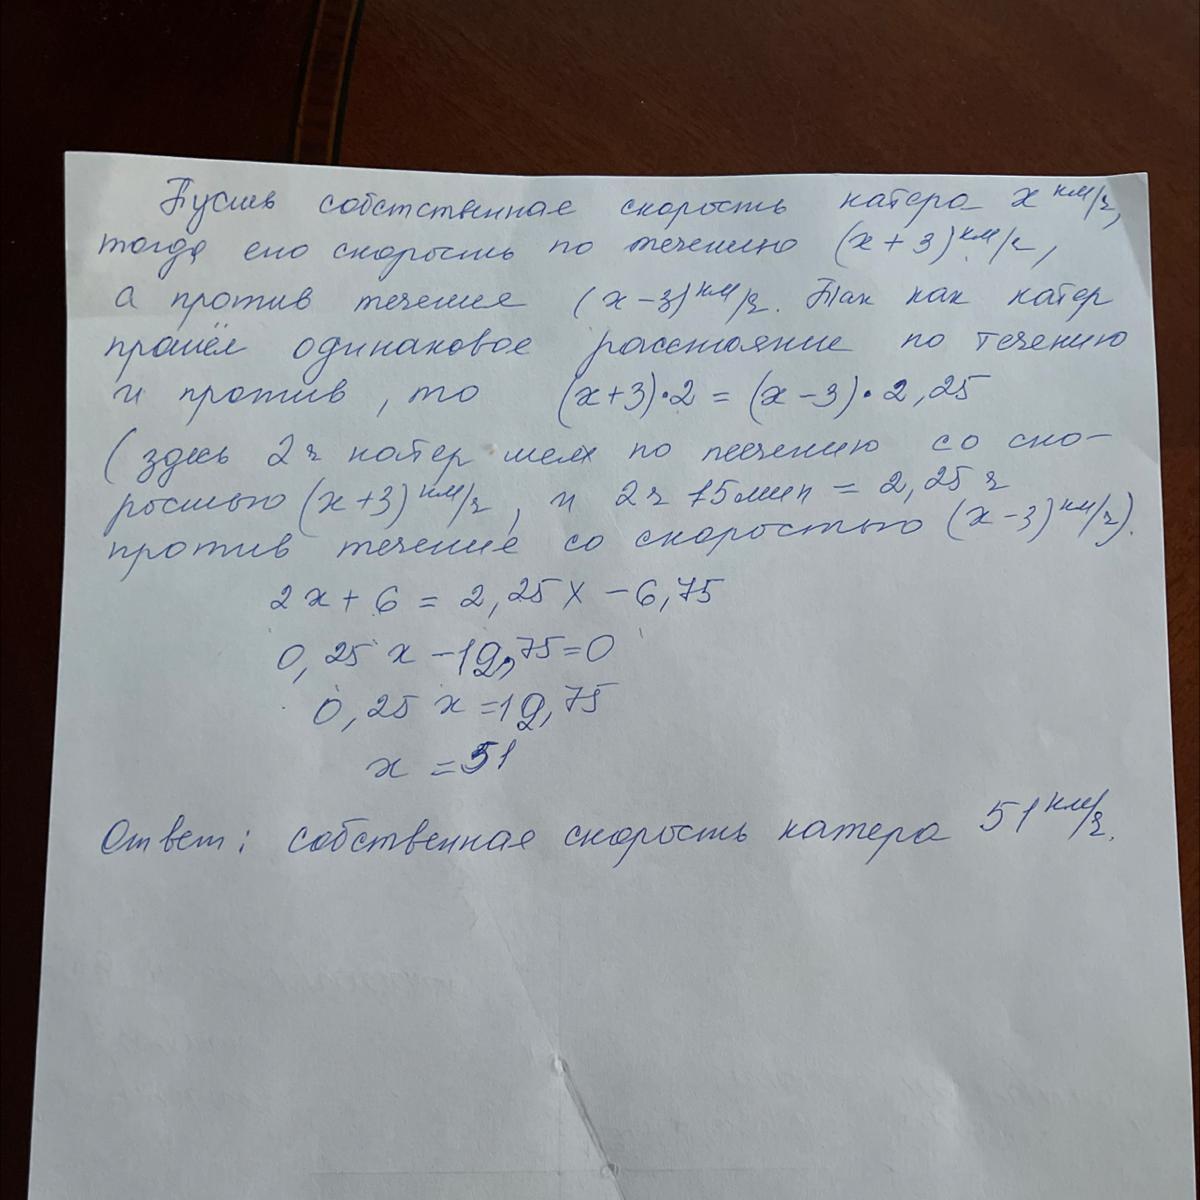 Пусть собственная скорость катера x км/ч,
тогда его скорость по течению (x + 3) км/ч,
а против течения (x − 3) км/ч. Так как катер
прошёл одинаковое расстояние по течению
и против, то (x + 3) · 2 = (x − 3) · 2,25
(здесь 2 ч катер шел по течению со ско-
ростью (x + 3) км/ч, и 2 ч 15 мин = 2,25 ч
против течение со скоростью (x − 3) км/ч).
2x + 6 = 2,25x − 6,75
0,25 x − 12,75 = 0
0,25 x = 12,75
x = 51
Ответ: собственная скорость катера 51 км/ч.